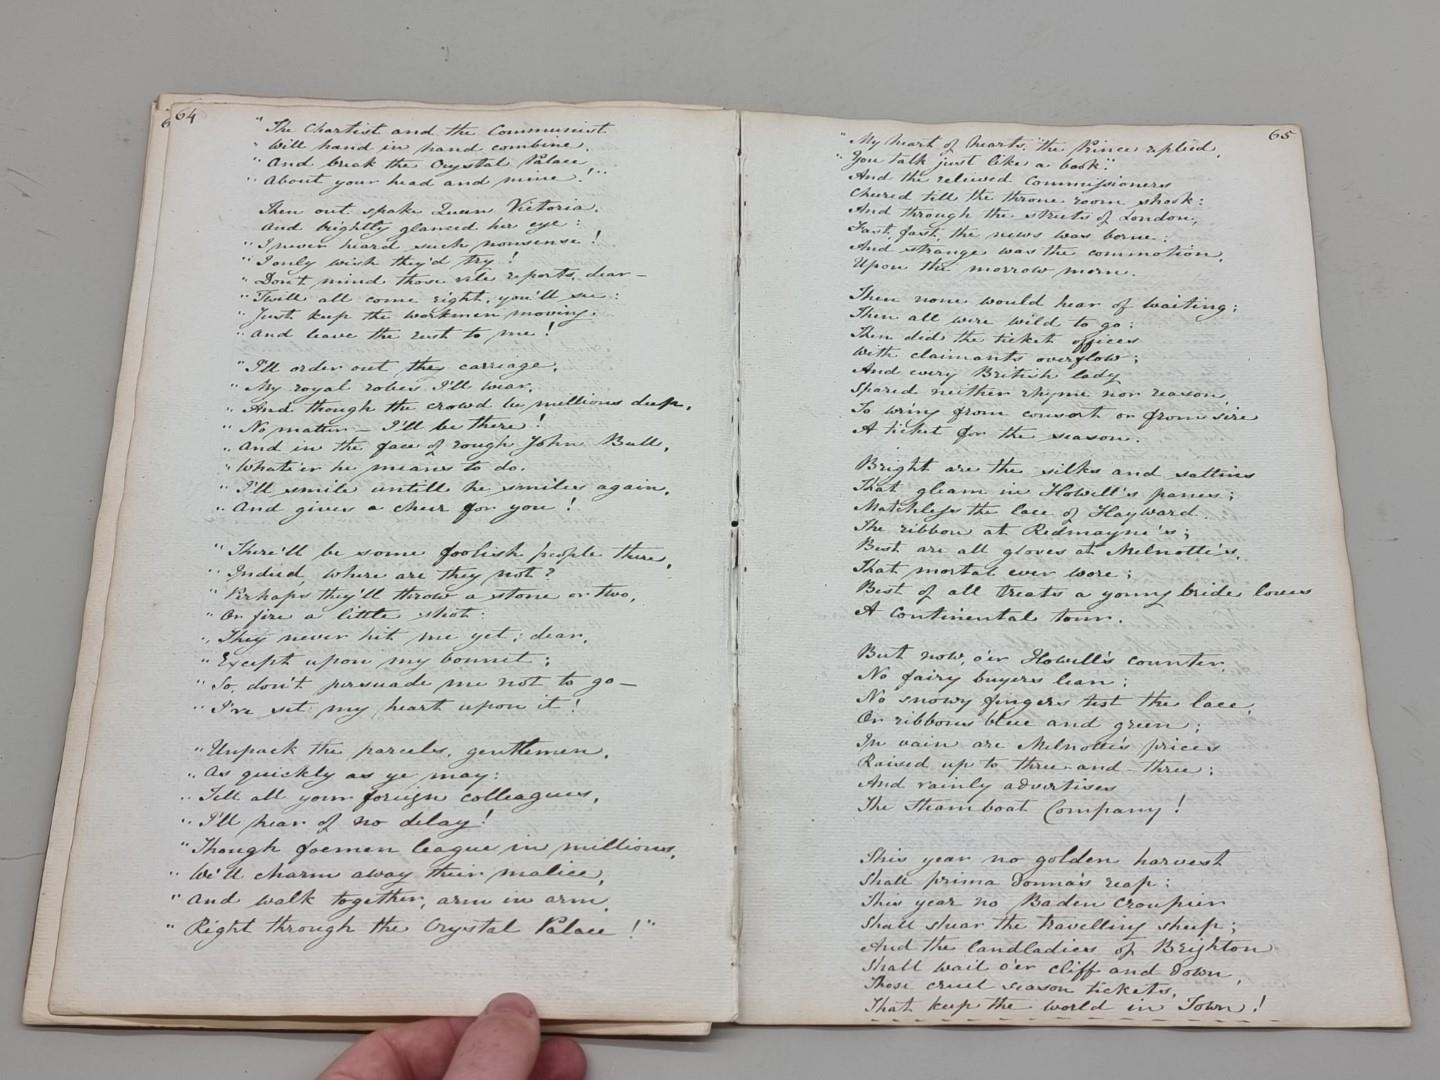 64
" The Chartist and the Communist
" Will hand in hand combine,
" And break the Crystal Palace
" About your head and mine!"
Then out spake Queen Victoria,
And brightly glanced her eye:
" I never heard such nonsense!
" I only wish they'd try!
" Don't mind those vile reports, dear—
" Twill all come right, you'll see:
" Just keep the workmen moving,
" And leave the rest to me!
" I'll order out the carriage,
" My royal robes I'll wear,
" And though the crowd be millions deep,
" No matter — I'll be there!
" And in the face of rough John Bull,
" Whate'er he means to do.
" I'll smile untill he smiles again,
" And gives a cheer for you!
" There'll be some foolish people there,
" Indeed, where are they not?
" Perhaps they'll throw a stone or two,
" Or fire a little shot:
" They never hit me yet, dear,
" Except upon my bonnet;
" So, don't persuade me not to go—
" I've set my heart upon it!
" Unpack the parcels, gentlemen,
" As quickly as ye may:
" Tell all your foreign colleagues,
" I'll hear of no delay!
" Though foemen league in millions,
" We'll charm away their malice,
" And walk together, arm in arm,
" Right through the Crystal Palace!"
65
" My heart of hearts, the Prince replied,
" You talk just like a book."
And the relieved Commissioners
Cheered till the throne room shook:
And through the streets of London,
Fast, fast, the news was borne:
And strange was the commotion,
Upon the morrow morn.
Then none would hear of waiting;
Then all were wild to go;
Then did the ticket offices
With claimants overflow;
And every British lady
Spared neither rhyme nor reason,
To wring from consort or from sire
A ticket for the season.
Bright are the silks and sattins
That gleam in Howell's panes;
Matchless the lace of Hayward
The ribbon at Redmayne's;
Best are all gloves at Melnotte's,
That mortal ever wore;
Best of all treats a young bride loves
A continental tour.
But now, o'er Howell's counter,
No fairy buyers lean;
No snowy fingers test the lace,
Or ribbons blue and green;
In vain are Melnotte's prices
Raised up to three-and-three;
And vainly advertises
The Steamboat Company!
This year no golden harvest
Shall prima Donna's reap;
This year no Baden Croupier
Shall shear the travelling sheep;
And the landladies of Brighton
Shall wail o'er cliff and Down,
Those cruel season tickets,
That keep the world in Town!